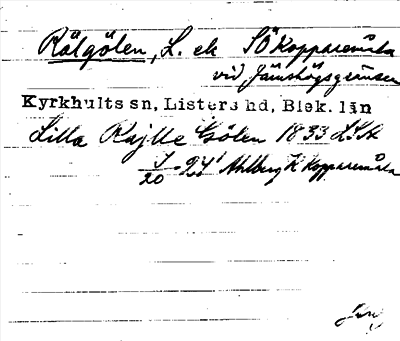 Rälgölen, L. ek SÖ Kopparemåla
vid Jämshögsgränsen
Kyrkhults sn, Listers hd, Blek. län
Lilla Rajlle Gölen 1833 LSA
Ahlberg K Kopparemåla